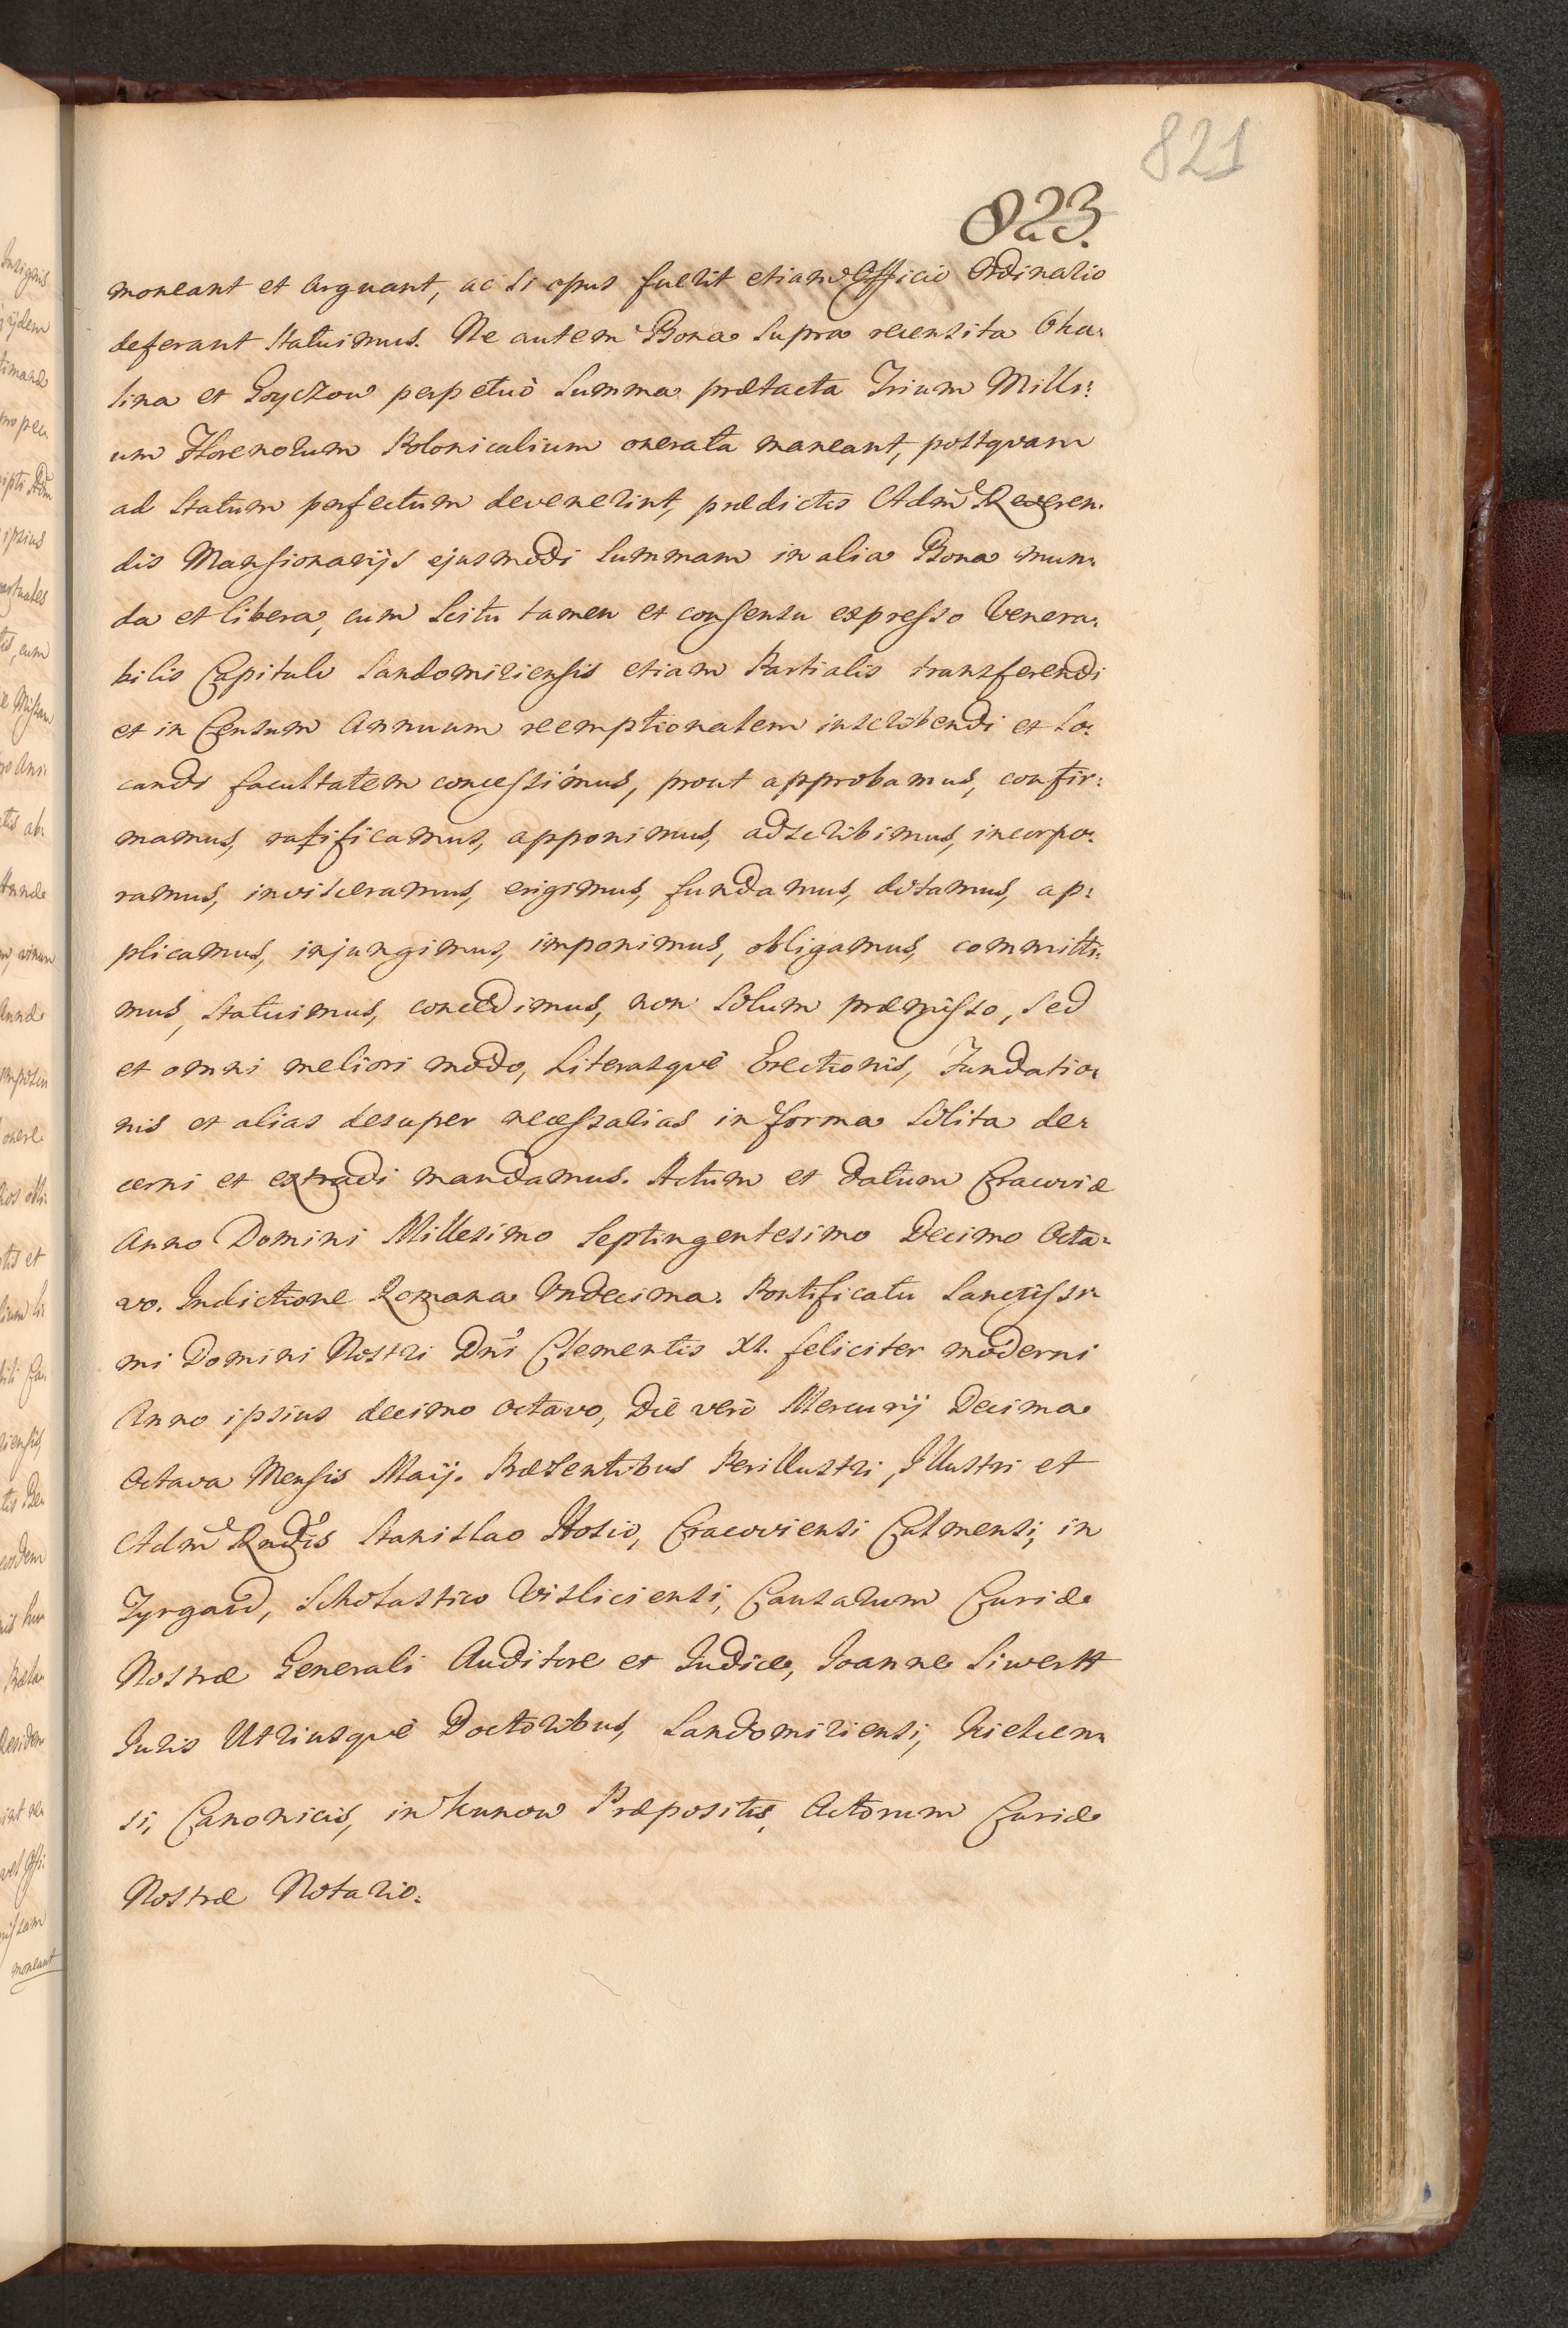 821
823.
moneant et arguant, ac si opus fuerit etiam Officio Ordinario
deferant statuimus. Ne autem Bona supra recensita Oka:
lina et Goyczow perpetuò summa prætacta Trium Milli:
um Florenorum Polonicalium onerata maneant, postquam
ad statum perfectum devenerint, prædictis Adm̃ Reveren:
dis Mansionarijs ejusmodi summam in alia Bona mun:
da et libera, cum scitu tamen et consensu expresso Venera:
bilis Capituli Sandomiriensis etiam Partialis transferendi
et in Censum Annuum reemptionalem inscribendi et lo:
candi facultatem concessimus, prout approbamus, confir:
mamus, ratificamus, apponimus, adscribimus, incorpo:
ramus, invisceramus, erigimus, fundamus, dotamus, ap:
plicamus, injungimus, imponimus, obligamus, committi:
mus, statuimus, concedimus, non solum præmisso, sed
et omni meliori modo, Literasquè Erectionis, Fundatio:
nis et alias desuper necessarias in forma solita de:
cerni et extradi mandamus. Actum et datum Cracoviæ
Anno Domini Millesimo Septingentesimo Decimo Octa:
vo. Indictione Romana Undecima. Pontificatu Sanctissi:
mi Domini Nostri Dñi Clementis XI. feliciter moderni
Anno ipsius decimo octavo, Die verò Mercurij Decima
Octava Mensis Maij. Præsentibus Perillustri, Illustri et
Adm̃ Rndis Stanislao Hosio, Cracoviensi Culmensi, in
Tyrgard, Scholastico Visliciensi, Causarum Curiæ
Nostræ Generali Auditore et Judice, Joanne Siwertt
Juris Utriusquè Doctoribus, Sandomiriensi, Kielcen:
si, Canonicis, in Kunow Præpositis, Actorum Curiæ
Nostræ Notario.
moneant